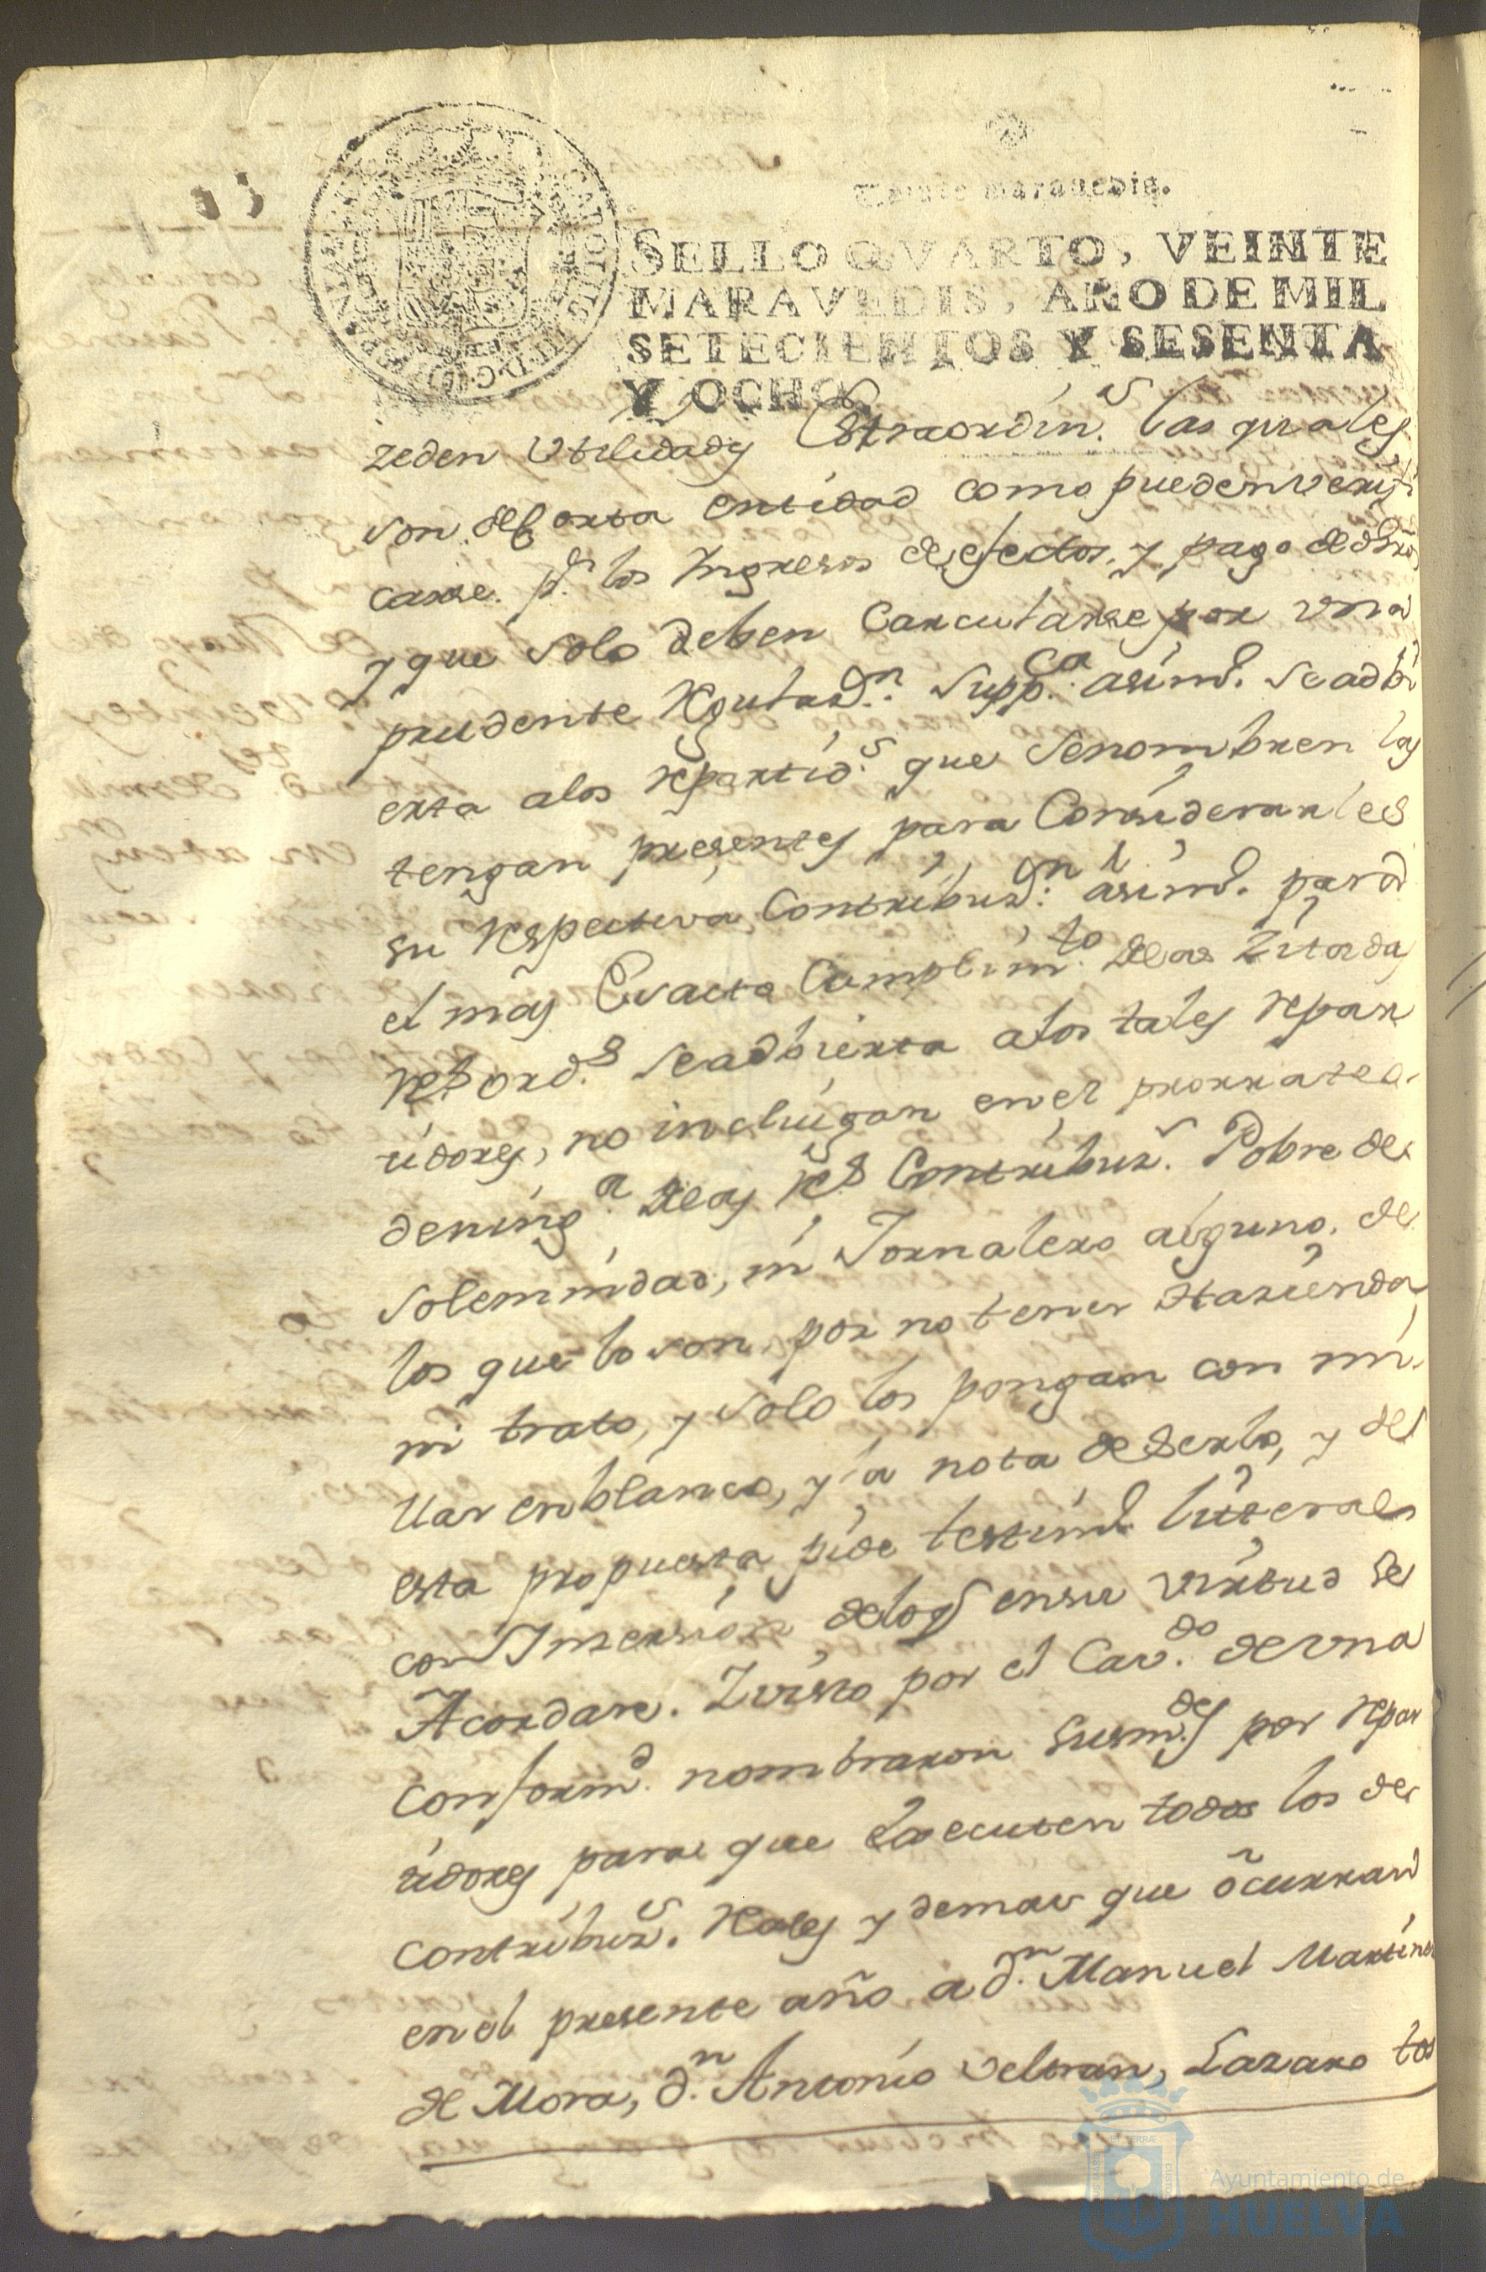 Veinte maravedis.
SELLO QVARTO, VEINTE
MARAVEDIS, AÑO DE MIL
SETECIENTOS Y SESENTA
Y OCHO.
zeden Vtilidads Estraordin.s las quales
son de Corta entidad como pueden verifi
carse. p.r los Yngresos de efectos, y pago de
y que solo deben Carcularse por vna
prudente Regulaz.n Supp.ca asim.o se adbi
erta alos repartid.s que se nombren las
tengan presentes para Considerarles
su Respectiva Contribuz.on asim.o para
el mas Exacto Cumplim.to de as Zitadas
R.s ord.s se adbierta alos tales repar
tidores, no incluigan en el prorrateo
de ning.a de as R.s Contribuz.s Pobre de
solemnidad, ni Jornalero alguno. de
los que lo son, por no tener Hazienda,
ni trato, y solo los pongan con mi
llar en blanco, y la nota de serlo, y de
esta propuesta pide testim.o literal
con Ynsersion delo q.e en su virtud se
Acordare. Y visto por el Cav.do de vna
conform.d nombraron Susm.des por repar
tidores para que executen todos los de
contribuz.s Rales y demas que ocurran
en el presente año a d.n Manuel Martinez
de Mora, d.n Antonio Veltran, Lazaro
Ayuntamiento de
HUELVA